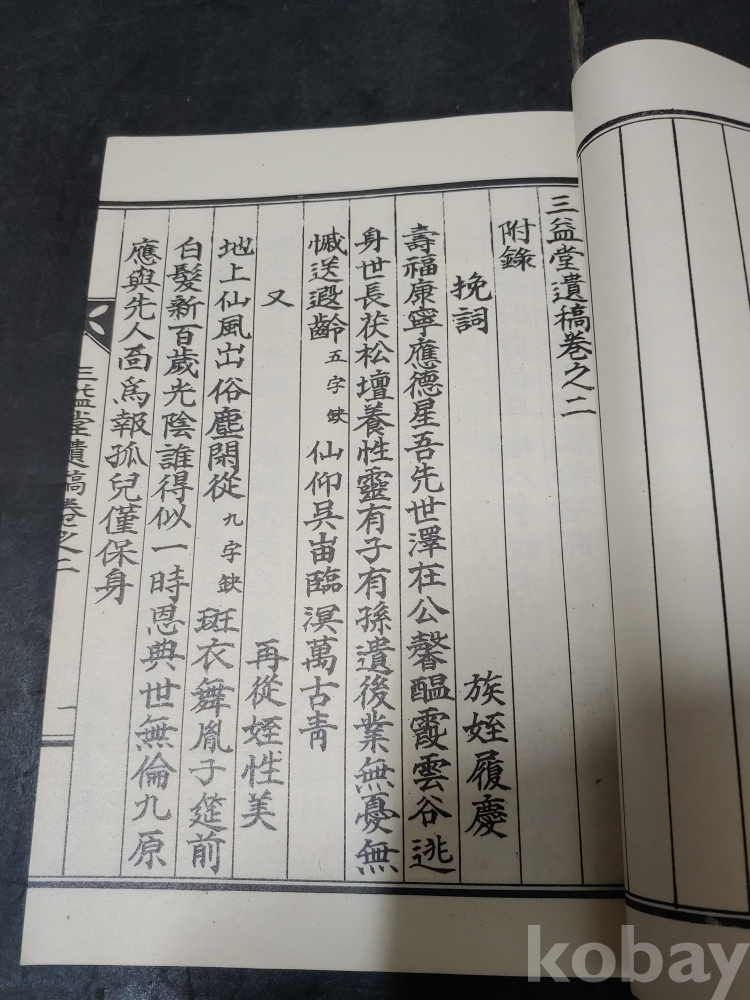 三益堂遺稿卷之二
附錄
挽詞 族姪履慶
壽福康寧應德星吾先世澤在公馨醞霞雲谷逃
身世長茯松壇養性靈有子有孫遺後業無憂無
慽送遐齡五字缺仙仰吳峀臨溟萬古靑
又 再從姪性美
地上仙風出俗塵閑從九字缺斑衣舞胤子筵前
白髮新百歲光陰誰得似一時恩典世無倫九原
應與先人面爲報孤兒僅保身
三益堂遺稿卷之二 一
kobay